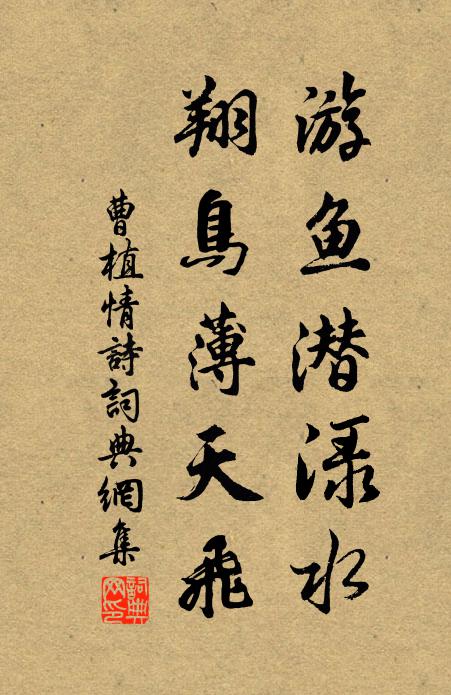 游鱼潜渌水
翔鳥薄天飛
曹植情詩詞典網集
詞典网印